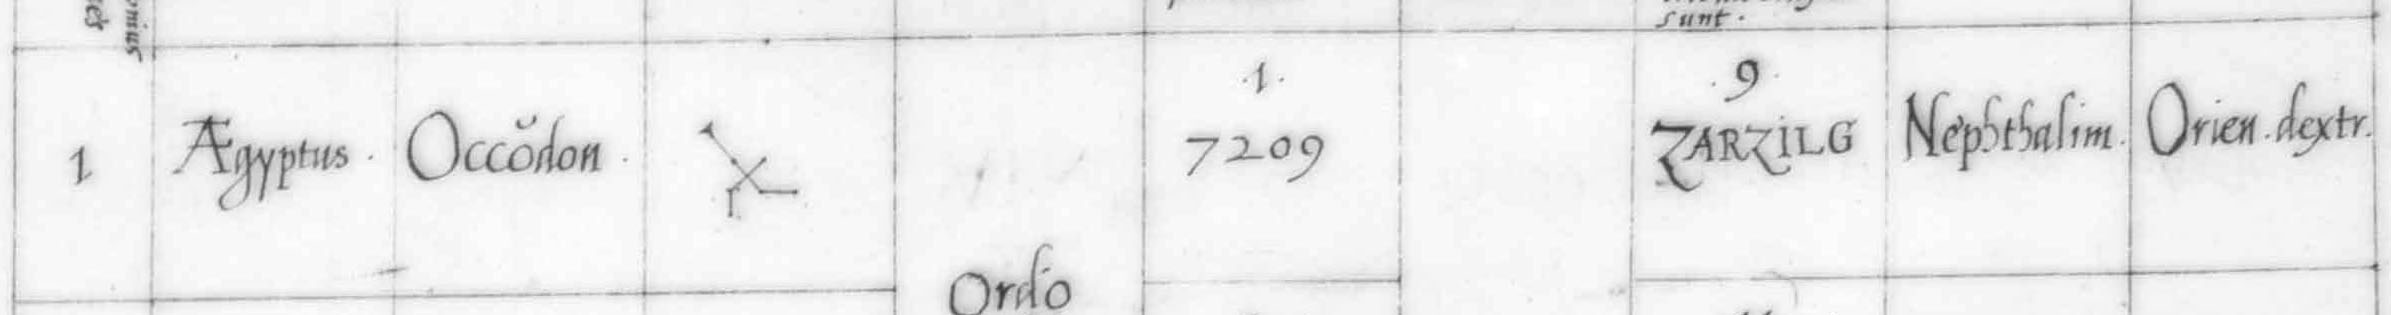 sunt.
1 Ægyptus. Occŏdon. 1. 7209 9 ZARZILG Nephthalim. Orien. dextr.
Ordo